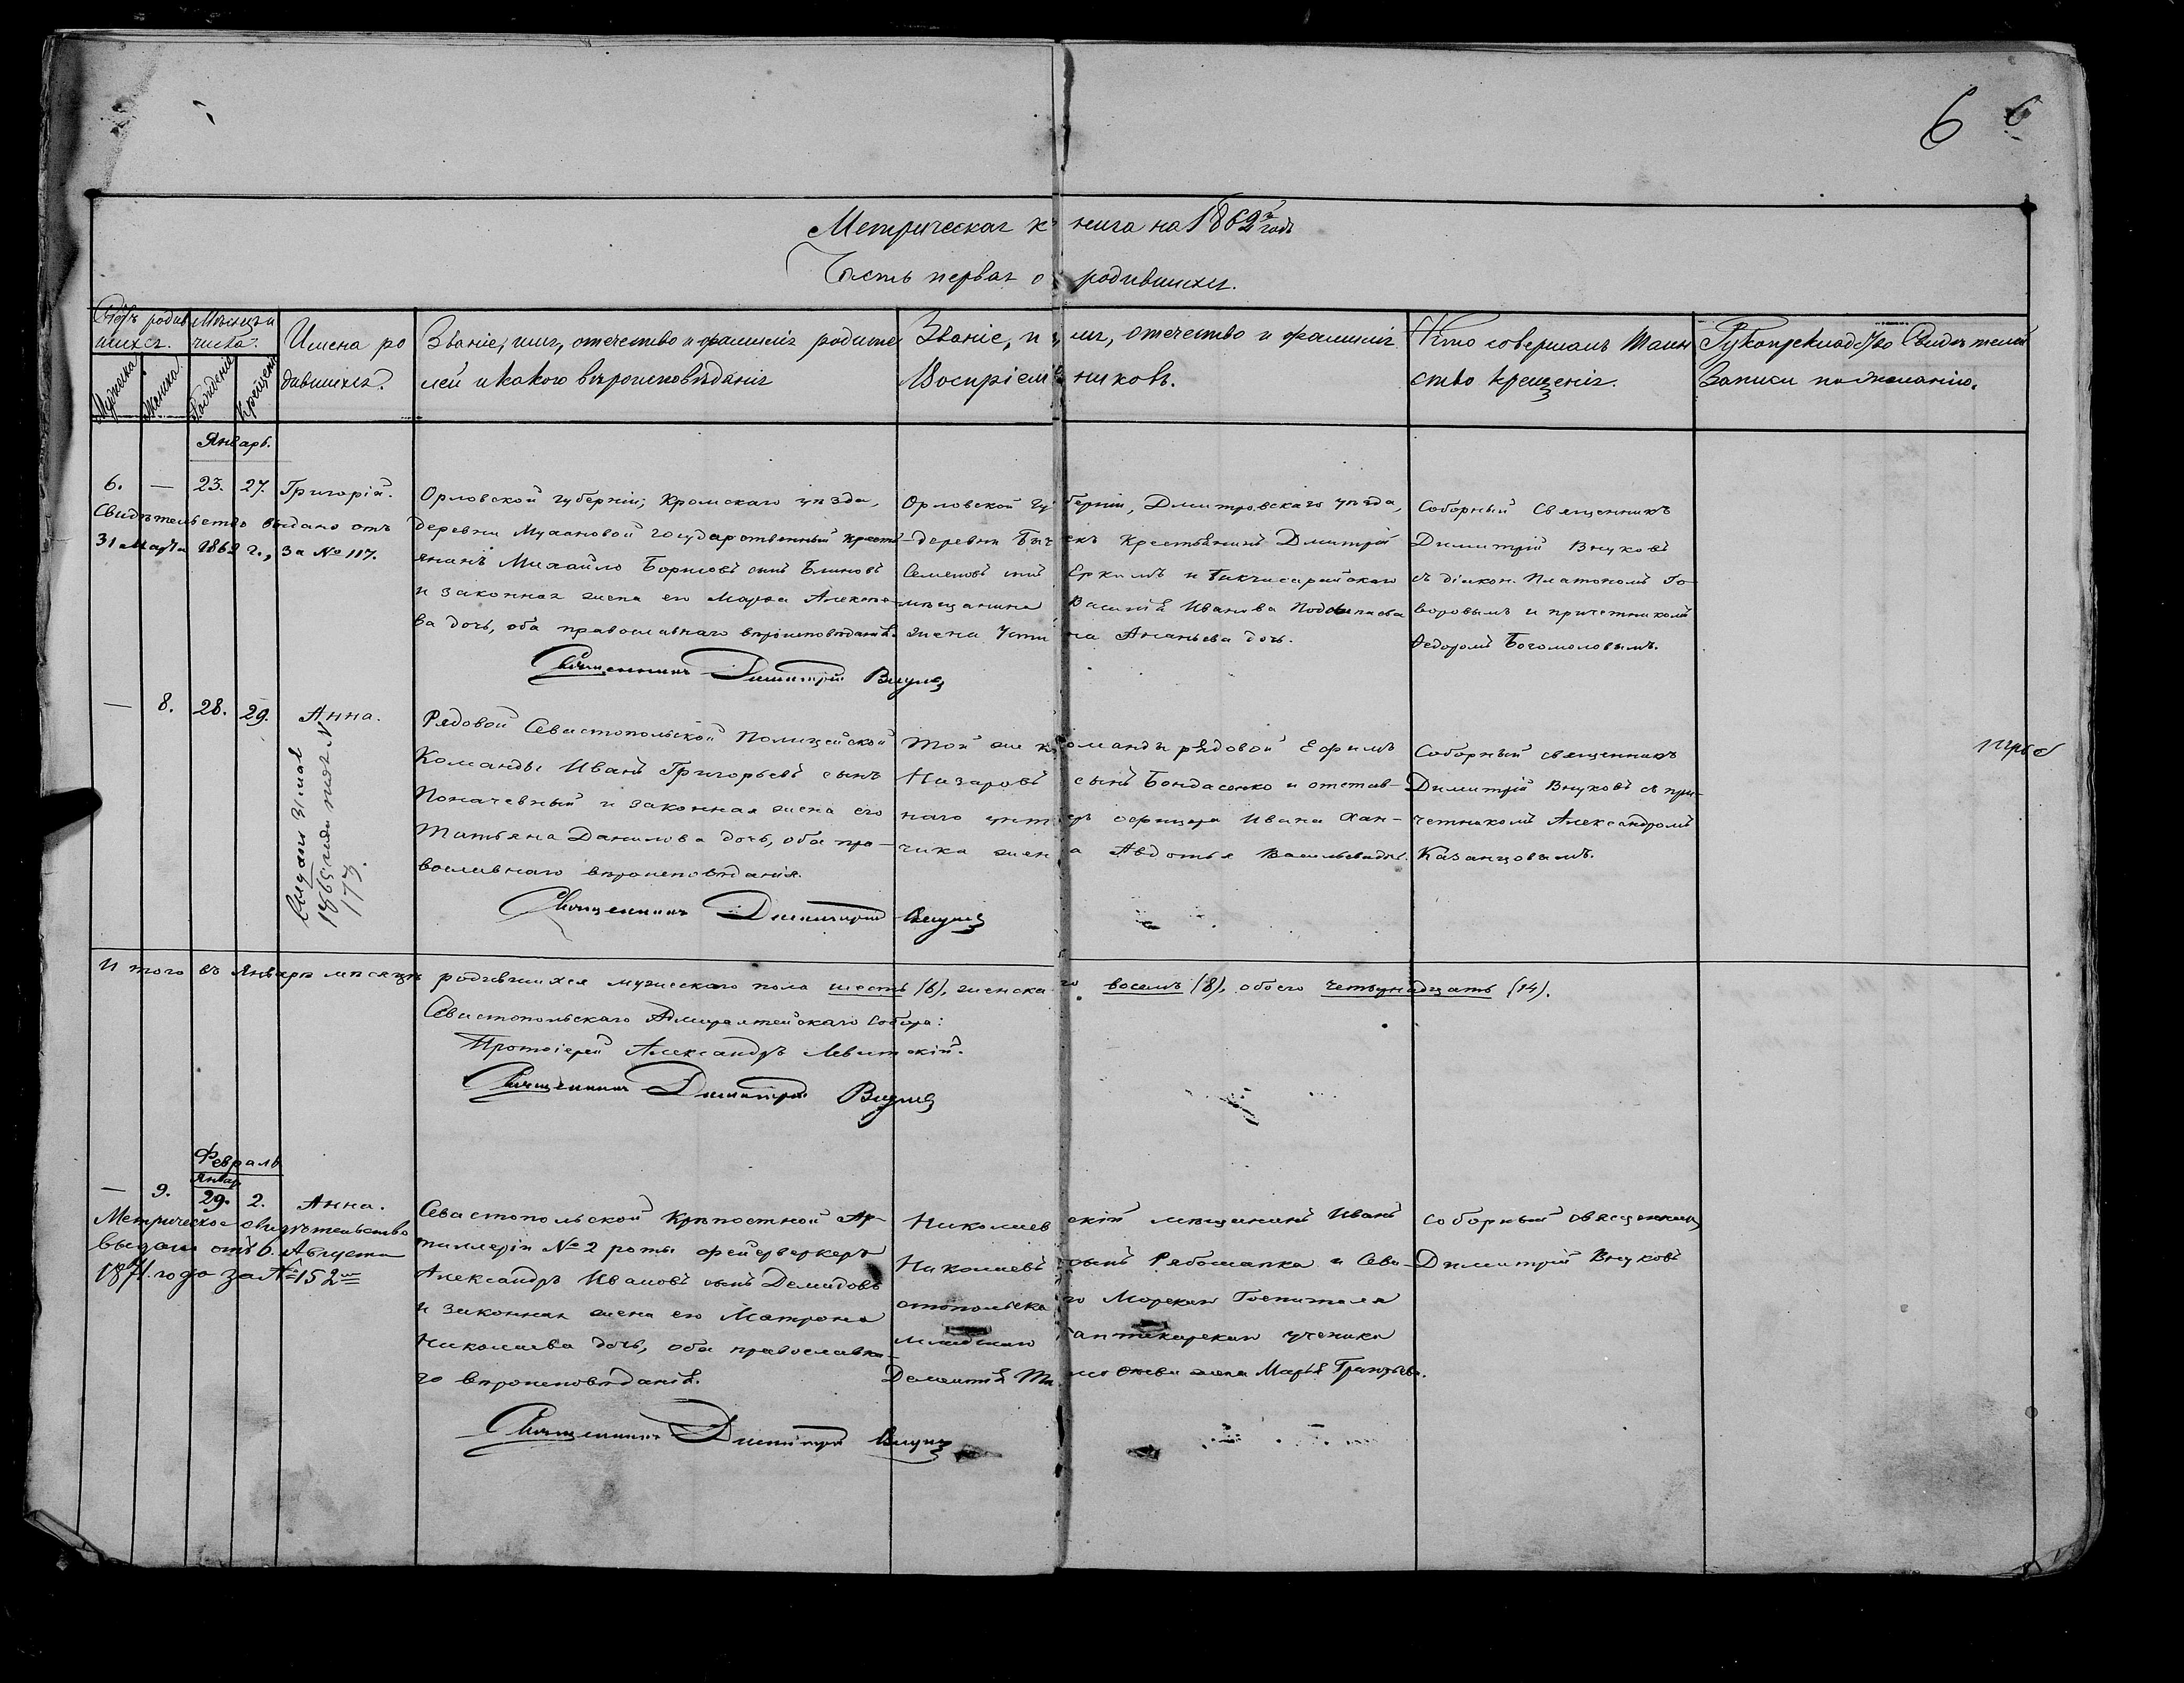 6 6
Метрическая книга на 1862й годъ
Часть первая о родившихся.
Счетъ родив
шихся.
Мужеска.
Женска.
Мѣсяцъ и
числа.
Рожденія
Крещенія
Имена ро
дившихся.
Званіе, имя, отечество и фамилія родите
лей и какого вѣроисповѣданія
Званіе, имя, отечество и фамилія
Воспріемниковъ.
Кто совершалъ Таин
ство крещенія.
Рукоприкладство Свидѣтелей
Записи по желанію.
Январь.
6. — 23. 27. Григорій.
Свидѣтельство выдано отъ
31 Марта 1862 г., за № 117.
Орловской губерніи, Кромскаго уѣзда,
деревни Мухановой государственный кресть
янинъ Михайло Борисовъ сынъ Блиновъ
и законная жена его Марфа Алексѣе-
ва дочь, оба православнаго вѣроисповѣданія.
Священникъ Димитрій Внуковъ
Орловской губерніи, Дмитровскаго уѣзда,
крестьянинъ Дмитрій
Семеновъ сынъ
мѣщанина Василія Иванова
жена Устина Ананьева дочь.
Соборный Священникъ
Димитрій Внуковъ
съ діакон. Платономъ Го-
воровымъ и причетникомъ
Федоромъ Богомоловымъ.
— 8. 28. 29. Анна.
1865 года подъ №
173.
Рядовой Севастопольской Полицейской
Команды Иванъ Григорьевъ сынъ
Поначевный и законная жена его
Татьяна Данилова дочь, оба пра-
вославнаго вѣроисповѣданія.
Священникъ Димитрій Внуковъ
Той же команды рядовой Ефимъ
Назаровъ сынъ Бондасенко и отстав-
наго унтеръ офицера Ивана Хан-
чика жена Авдотья Васильева доч.
Соборный священникъ
Димитрій Внуковъ съ при-
четникомъ Александромъ
Казанцовымъ.
Итого въ Январѣ мѣсяцѣ родившихся мужескаго пола шесть (6), женскаго восемь (8), обоего четырнадцать (14).
Севастопольскаго Адмиралтейскаго Собора:
Протоіерей Александръ Левитскій.
Священникъ Димитрій Внуковъ
Февраль
Январ.
— 9. 29. 2. Анна.
Метрическое свидѣтельство
выдано отъ 6. Августа
1871 года за № 152
Севастопольской Крѣпостной Ар-
тиллеріи № 2 роты фейерверкеръ
Александръ Ивановъ сынъ Демидовъ
и законная жена его Матрона
Николаева дочь, оба православна-
го вѣроисповѣданія.
Священникъ Димитрій Внуковъ
Николаевскій мѣщанинъ Иванъ
Николаевъ сынъ Рябошапка и Сева-
стопольскаго Морскаго Госпиталя
младшаго аптекарскаго ученика
Дементія Тимофеева жена Марія Григорьева.
Соборный священникъ
Димитрій Внуковъ